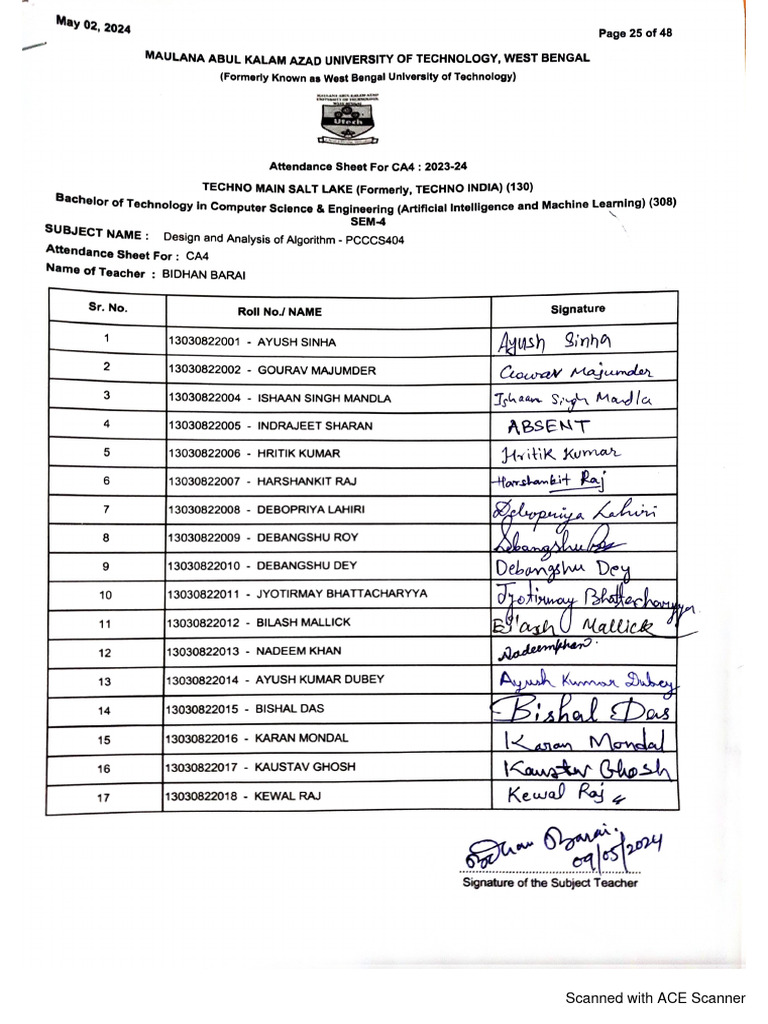 May 02, 2024
Page 25 of 48
MAULANA ABUL KALAM AZAD UNIVERSITY OF TECHNOLOGY, WEST BENGAL
(Formerly Known as West Bengal University of Technology)
MAULANA ABUL KALAM AZAD
UNIVERSITY OF TECHNOLOGY
WEST BENGAL
Utech
Attendance Sheet For CA4 : 2023-24
TECHNO MAIN SALT LAKE (Formerly, TECHNO INDIA) (130)
Bachelor of Technology in Computer Science & Engineering (Artificial Intelligence and Machine Learning) (308)
SEM-4
SUBJECT NAME : Design and Analysis of Algorithm - PCCCS404
Attendance Sheet For : CA4
Name of Teacher : BIDHAN BARAI
Sr. No. Roll No./ NAME Signature
1 13030822001 - AYUSH SINHA Ayush Sinha
2 13030822002 - GOURAV MAJUMDER Gourav Majumder
3 13030822004 - ISHAAN SINGH MANDLA Ishaan Singh Mandla
4 13030822005 - INDRAJEET SHARAN ABSENT
5 13030822006 - HRITIK KUMAR Hritik Kumar
6 13030822007 - HARSHANKIT RAJ Harshankit Raj
7 13030822008 - DEBOPRIYA LAHIRI Debopriya Lahiri
8 13030822009 - DEBANGSHU ROY Debangshu Roy
9 13030822010 - DEBANGSHU DEY Debangshu Dey
10 13030822011 - JYOTIRMAY BHATTACHARYYA Jyotirmay Bhattacharyya
11 13030822012 - BILASH MALLICK Bilash Mallick
12 13030822013 - NADEEM KHAN Nadeemkhan
13 13030822014 - AYUSH KUMAR DUBEY Ayush Kumar Dubey
14 13030822015 - BISHAL DAS Bishal Das
15 13030822016 - KARAN MONDAL Karan Mondal
16 13030822017 - KAUSTAV GHOSH Kaustav Ghosh
17 13030822018 - KEWAL RAJ Kewal Raj
Bidhan Barai.
09/05/2024
Signature of the Subject Teacher
Scanned with ACE Scanner